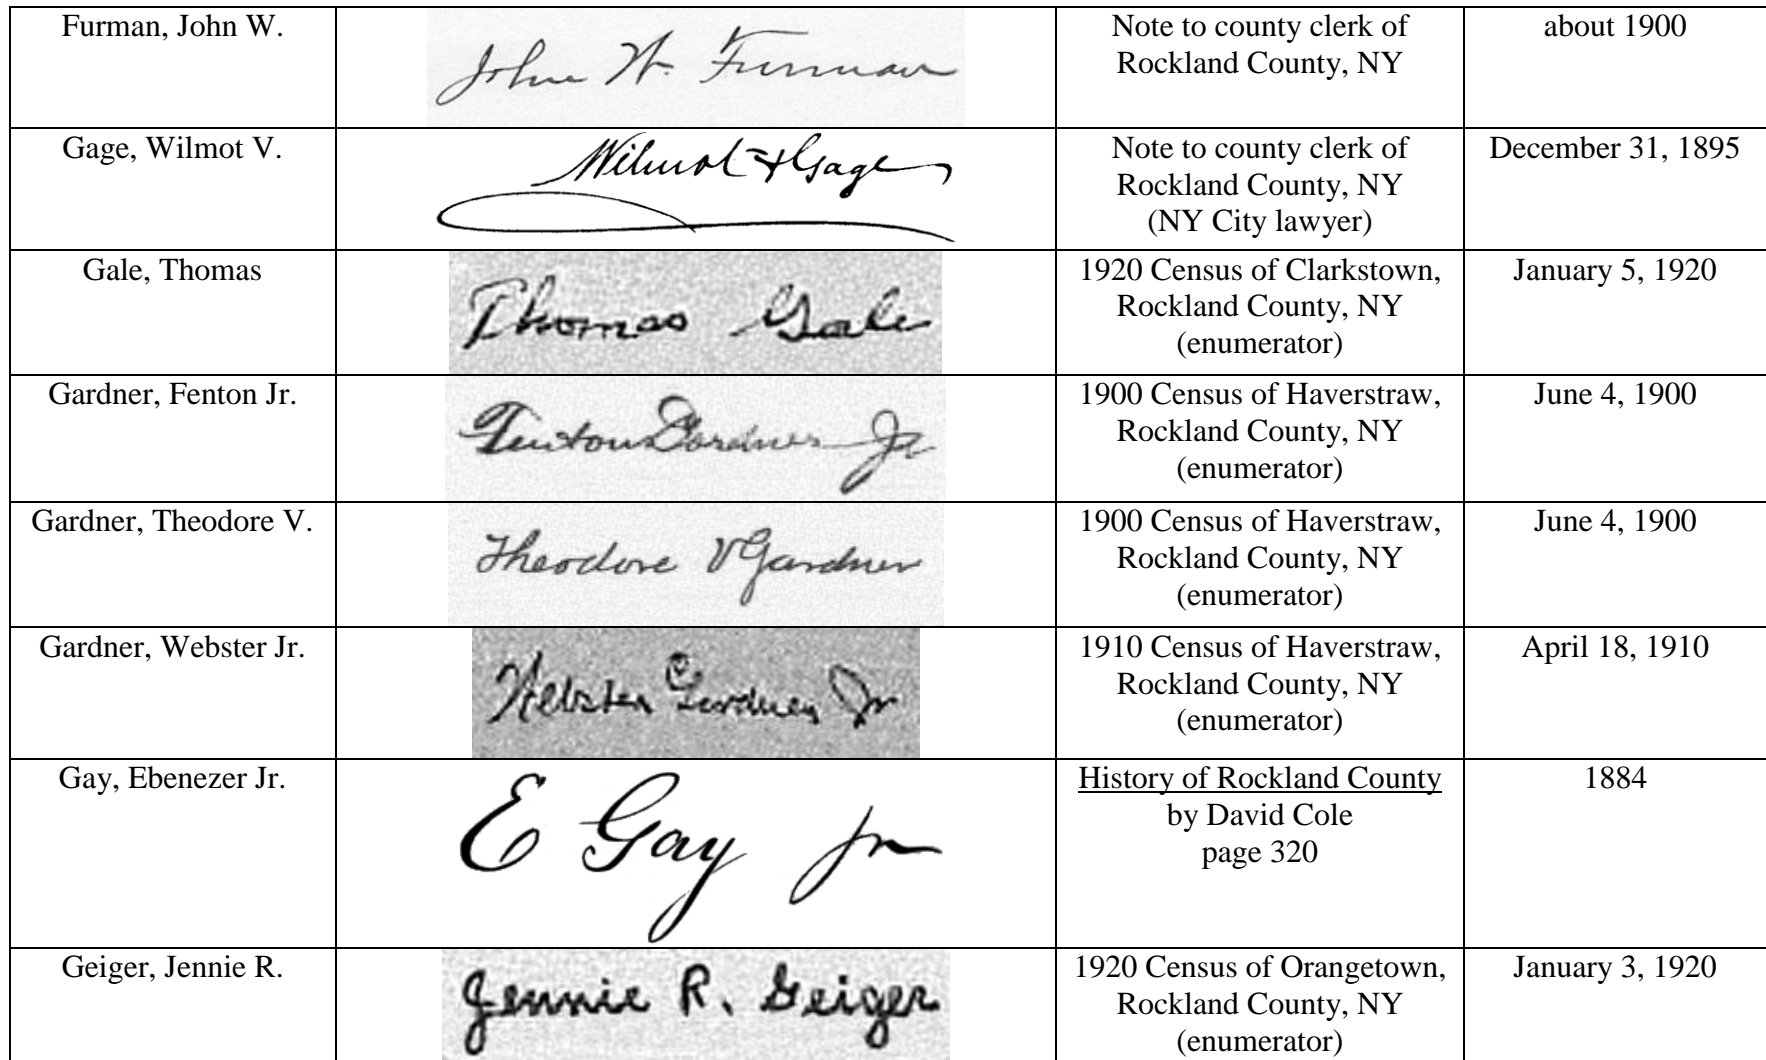 Furman, John W.
John W. Furman
Note to county clerk of
Rockland County, NY
about 1900
Gage, Wilmot V.
Wilmot V Gage
Note to county clerk of
Rockland County, NY
(NY City lawyer)
December 31, 1895
Gale, Thomas
Thomas Gale
1920 Census of Clarkstown,
Rockland County, NY
(enumerator)
January 5, 1920
Gardner, Fenton Jr.
Fenton Gardner Jr
1900 Census of Haverstraw,
Rockland County, NY
(enumerator)
June 4, 1900
Gardner, Theodore V.
Theodore V Gardner
1900 Census of Haverstraw,
Rockland County, NY
(enumerator)
June 4, 1900
Gardner, Webster Jr.
Webster Gardner Jr
1910 Census of Haverstraw,
Rockland County, NY
(enumerator)
April 18, 1910
Gay, Ebenezer Jr.
E Gay Jr
History of Rockland County
by David Cole
page 320
1884
Geiger, Jennie R.
Jennie R. Geiger
1920 Census of Orangetown,
Rockland County, NY
(enumerator)
January 3, 1920